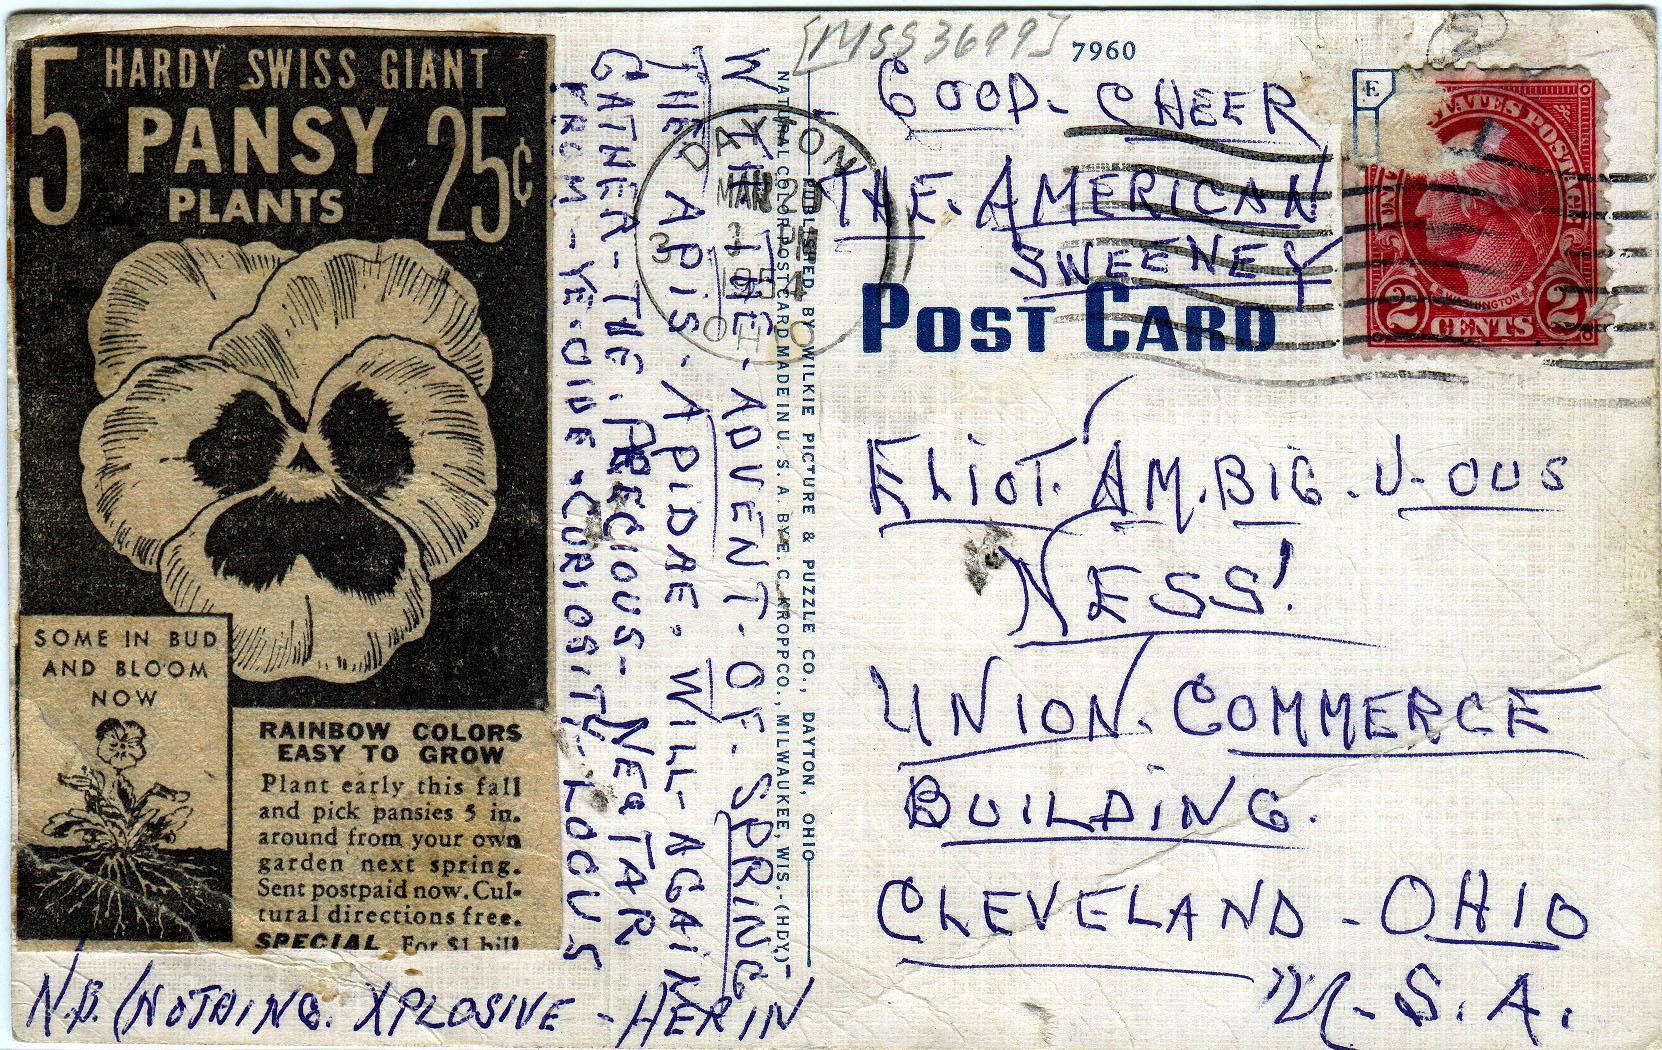 5 HARDY SWISS GIANT
PANSY
PLANTS 25¢
SOME IN BUD
AND BLOOM
NOW
RAINBOW COLORS
EASY TO GROW
Plant early this fall
and pick pansies 5 in.
around from your own
garden next spring.
Sent postpaid now. Cul-
tural directions free.
SPECIAL For $1 bill
WITH-THE-ADVENT-OF-SPRING
THE APIS-APIDAE. WILL-AGAIN
GATHER-THE. PRECIOUS-NECTAR
FROM-YE-OLDE-CURIOSITY-LOCUS
N.B. (NOTHING. XPLOSIVE-HERIN
NATURAL COLOR POST CARD MADE IN U. S. A. BY E. C. KROPP CO., MILWAUKEE, WIS.-(HDY)
PUBLISHED BY WILKIE PICTURE & PUZZLE CO., DAYTON, OHIO
[MSS3699]
7960
2
GOOD-CHEER
THE. AMERICAN
SWEENEY
DAYTON
MAR
3 PM
1954
OHIO
3
E
POSTAGE
WASHINGTON
2 CENTS 2
POST CARD
ELIOT. AM.BIG.U-OUS
NESS!
UNION. COMMERCE
BUILDING.
CLEVELAND-OHIO
U.S.A.